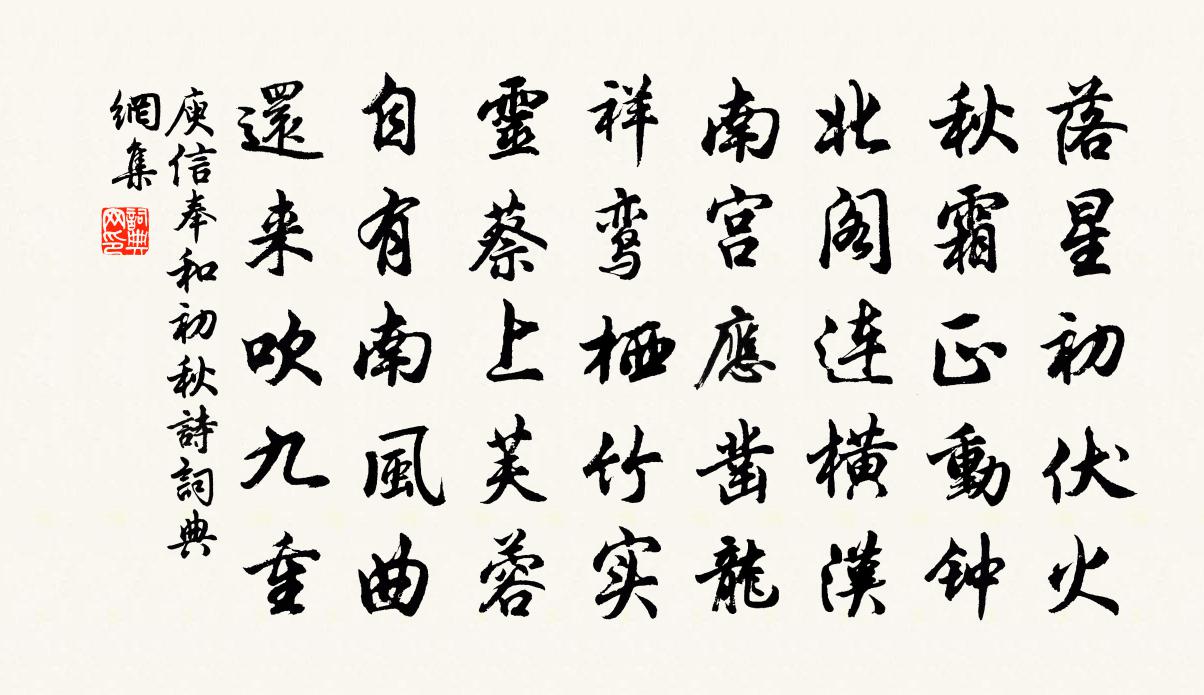 落星初伏火
秋霜正動钟
北阁連横漢
南宫應凿龍
祥鸾栖竹实
靈蔡上芙蓉
自有南風曲
還来吹九重
庾信奉和初秋詩詞典
網集
詞典
网印